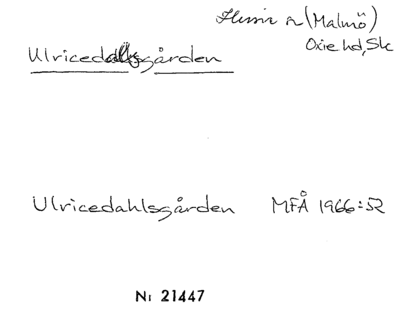 (Malmö)
Oxie hd, Sk
Ulricedahlsgården
Ulricedahlsgården MFÅ 1966:52
N: 21447